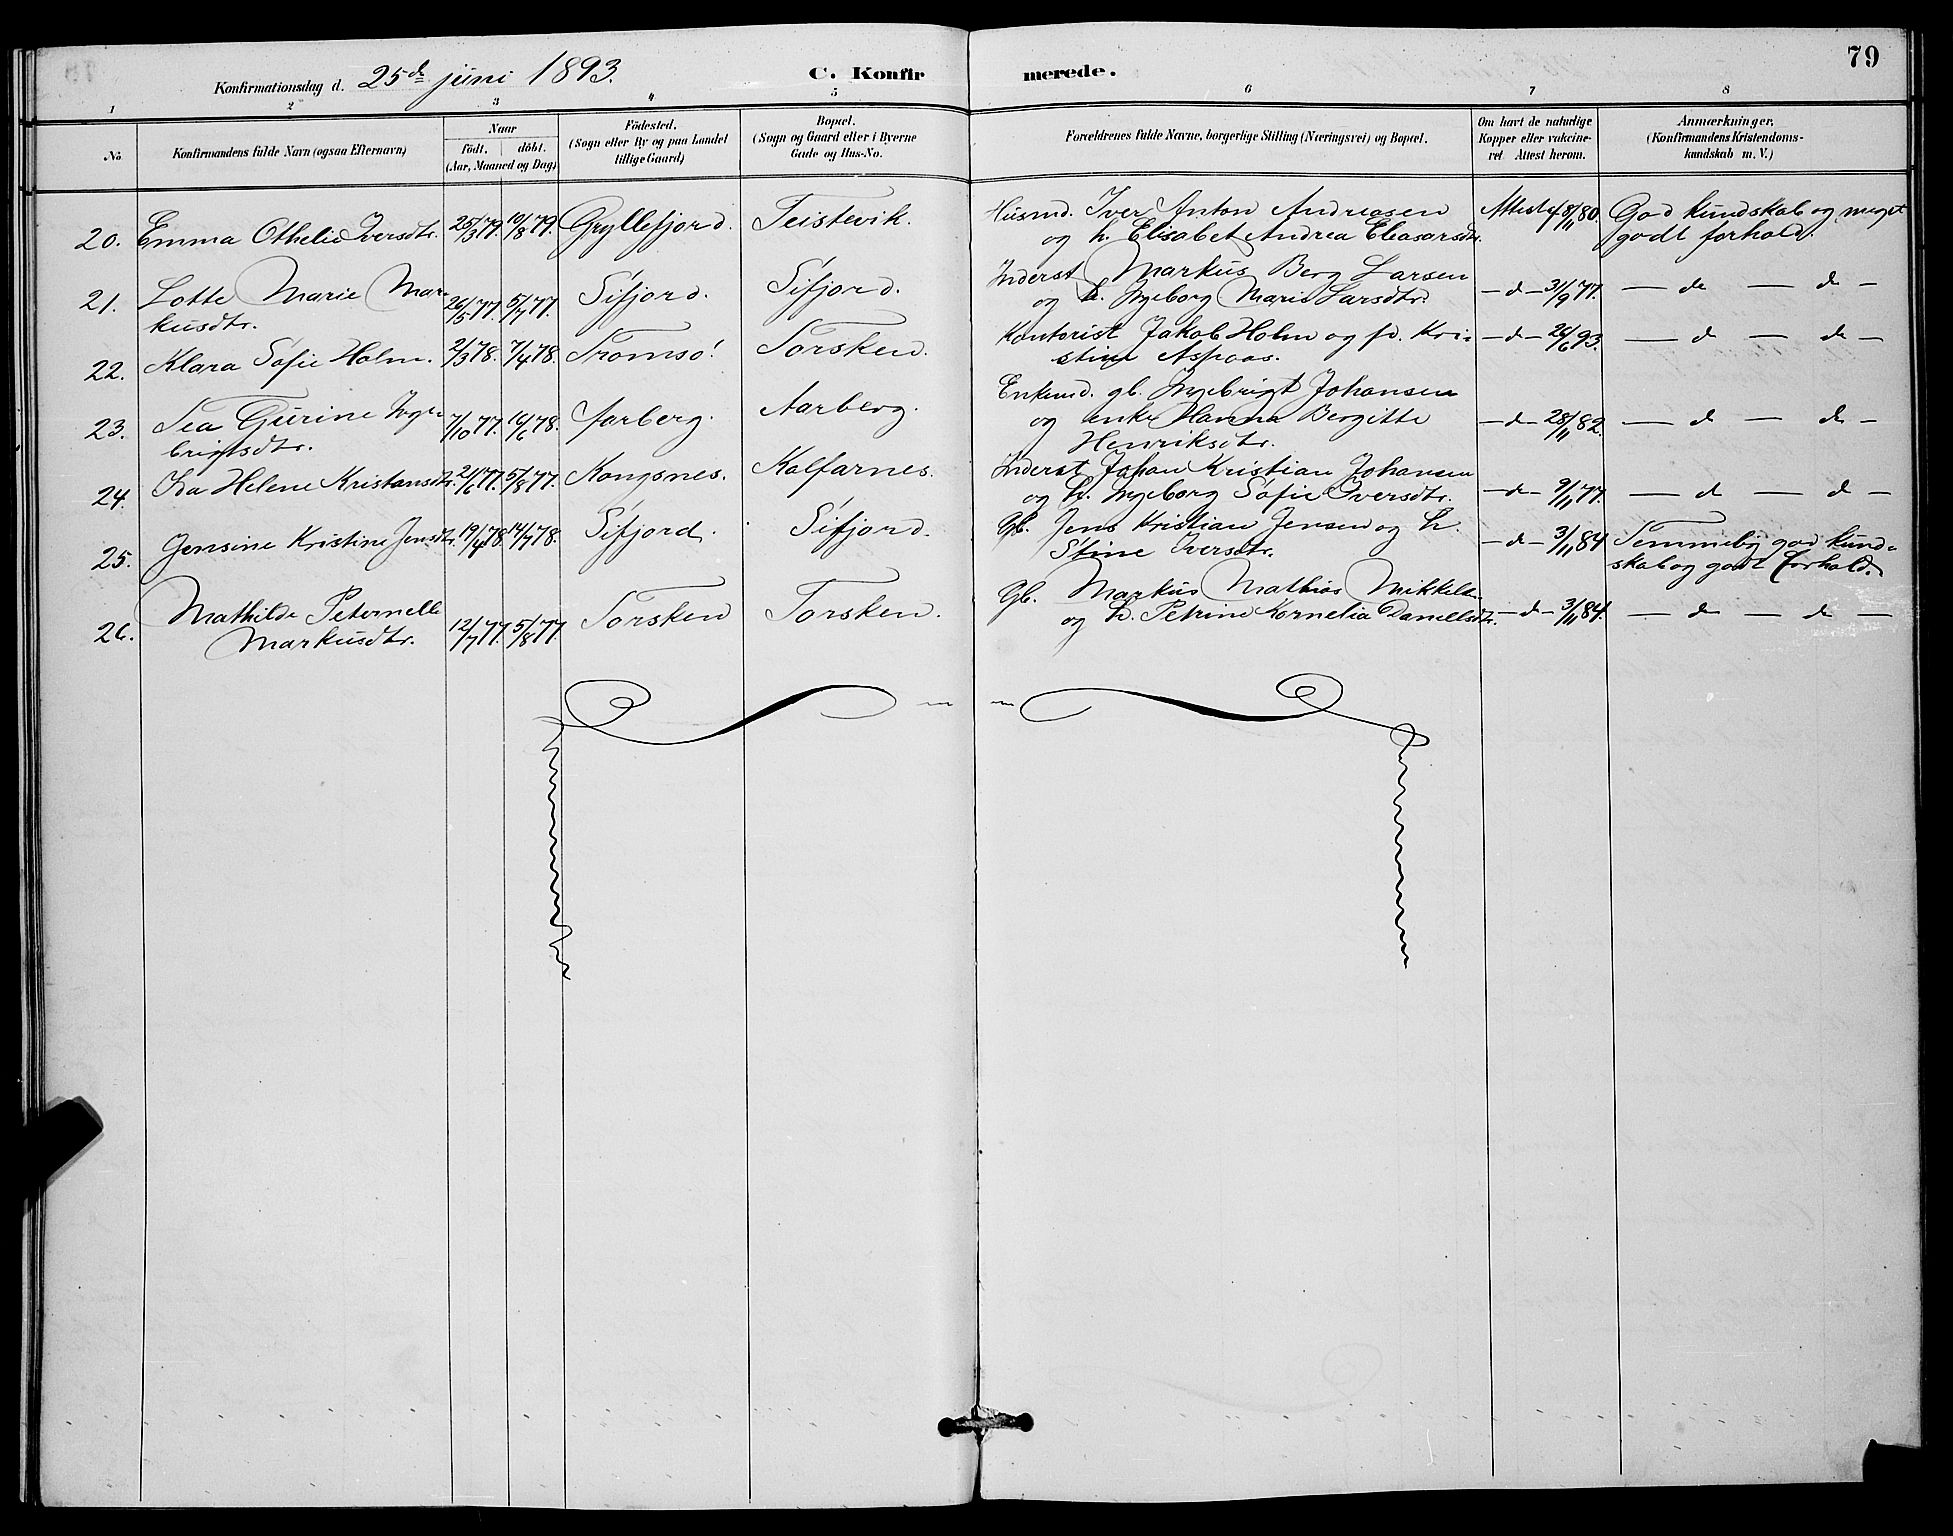 79
Konfirmationsdag d. 25de juni 1893. C. Konfirmerede.
1 2 3 4 5 6 7 8
No. Konfirmandens fulde Navn (ogsaa Efternavn) Naar födt. döbt. (Aar, Maaned og Dag) Födested. (Sogn eller By og paa Landet tillige Gaard) Bopæl. (Sogn og Gaard eller i Byerne Gade og Hus-No. Forældrenes fulde Navne, borgerlige Stilling (Næringsvei) og Bopæl. Om havt de naturlige Kopper eller vakcineret Attest herom. Anmærkninger, (Konfirmandens Kristendomskundskab m. V.)
20. Emma Othelie Iversdtr. 25/3 79. 10/8 79. Gryllefjord. Teistevik. Husmd. Iver Anton Andreasen Attest 48/11 80. God kundskab og meget
og h. Elisabet Andrea Eleasarsdtr. godt forhold.
21. Lotte Marie Mar- 26/5 77. 5/7 77. Sifjord. Sifjord. Inderst Markus Berg Larsen
kusdtr. og h. Ingeborg Marie Larsdtr. — d — 3/9 77. — de — d —
22. Klara Sofie Holm. 2/3 78. 7/4 78. Tromsö. Torsken. Kontorist Jakob Holm og fr. Kri- — d — 26/6 93. — d — de —
stine Aspaas.
23. Tea Gurine Inge- 7/10 77. 16/6 78. Aarberg. Aarberg. Enkemd. gb. Ingebrigt Johansen
brigtsdtr. og enke Hanna Bergitte — d — 28/11 82. — d — de —
Henriksdtr.
24. Ida Helene Kristansdtr. 24/6 77. 5/8 77. Kongsnes. Kalfarnes. Inderst Johan Kristian Johansen
og h. Ingeborg Sofie Iversdtr. — d — 9/11 77. — d — d —
25. Jensine Kristine Jensdtr. 19/4 78. 14/7 78. Sifjord. Sifjord. Gb. Jens Kristian Jensen og h. — d — 3/11 84 Temmelig god kund-
Stine Iversdtr. skab og godt forhold.
26. Mathilde Peternelle 12/7 77. 5/8 77. Torsken Torsken. Gb. Markus Mathias Mikkels.
Markusdtr. og h. Petrine Kornelia Danielsdtr. — d — 3/11 84. — d — d —